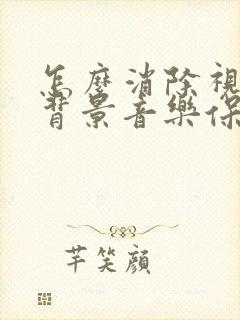 怎麼消除視
背景音樂保
芊笑顔